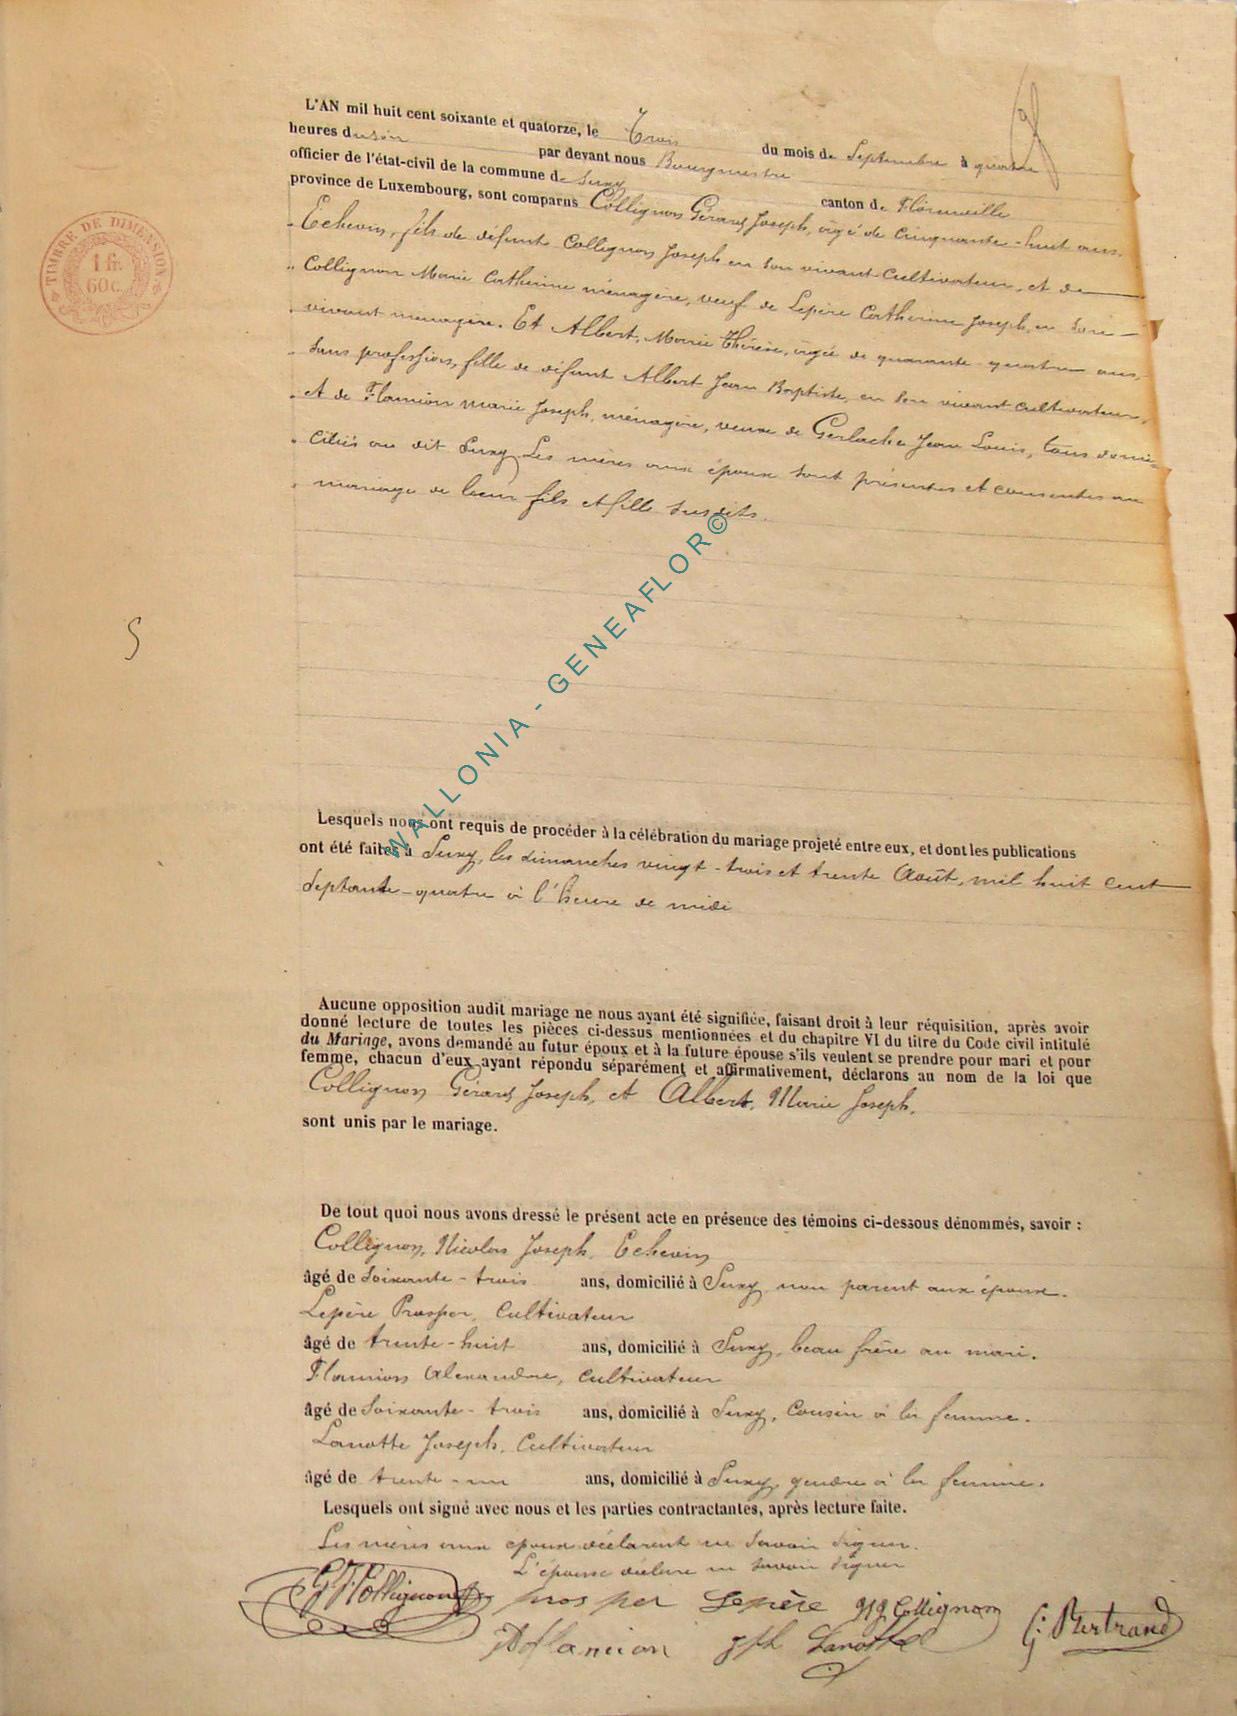 L'AN mil huit cent soixante et quatorze, le Trois du mois de Septembre à quatre
heures du soir par devant nous Bourgmestre
officier de l'état-civil de la commune de Suxy canton de Florenville
province de Luxembourg, sont comparus Collignon Gérard Joseph, âgé de cinquante-huit ans,
Echevin, fils de défunt Collignon Joseph en son vivant cultivateur, et de
Collignon Marie Catherine ménagère, veuf de Lepère Catherine Joseph, en son
vivant ménagère. Et Albert, Marie Thérèse, âgée de quarante-quatre ans,
sans profession, fille de défunt Albert Jean Baptiste, en son vivant cultivateur,
et de Flamion Marie Joseph, ménagère, veuve de Gerlache Jean Louis, tous domi-
ciliés au dit Suxy. Les mères aux époux sont présentes et consentes au
mariage de leur fils et fille susdits.
TIMBRE DE DIMENSION
1 fr.
60 c.
S
WALLONIA - GENEAFLOR©
Lesquels nous ont requis de procéder à la célébration du mariage projeté entre eux, et dont les publications
ont été faites à Suxy, les dimanches vingt-trois et trente Août, mil huit cent
septante-quatre à l'heure de midi
Aucune opposition audit mariage ne nous ayant été signifiée, faisant droit à leur réquisition, après avoir
donné lecture de toutes les pièces ci-dessus mentionnées et du chapitre VI du titre du Code civil intitulé
du Mariage, avons demandé au futur époux et à la future épouse s'ils veulent se prendre pour mari et pour
femme, chacun d'eux ayant répondu séparément et affirmativement, déclarons au nom de la loi que
Collignon Gérard Joseph, et Albert, Marie Joseph,
sont unis par le mariage.
De tout quoi nous avons dressé le présent acte en présence des témoins ci-dessous dénommés, savoir :
Collignon, Nicolas Joseph, Echevin
âgé de soixante-trois ans, domicilié à Suxy, non parent aux époux.
Lepère Prosper, Cultivateur
âgé de trente-huit ans, domicilié à Suxy, beau frère au mari.
Flamion Alexandre, cultivateur
âgé de soixante-trois ans, domicilié à Suxy, cousin à la femme.
Lanotte Joseph, Cultivateur
âgé de trente-un ans, domicilié à Suxy, gendre à la femme.
Lesquels ont signé avec nous et les parties contractantes, après lecture faite.
Les mères aux époux déclarent ne savoir signer.
L'épouse déclare ne savoir signer
G J Collignon prosper Lepère N J Collignon G. Bertrand
A flamion jph Lanotte